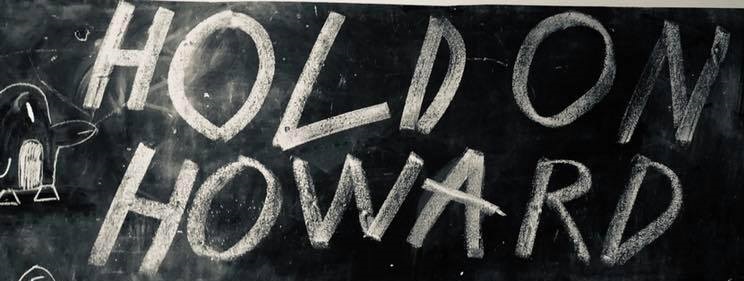 HOLD ON
HOWARD